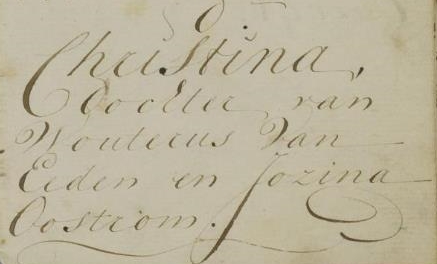 Christina,
dochter van
Wouterus Van
Eeden en Jozina
Oostrom.